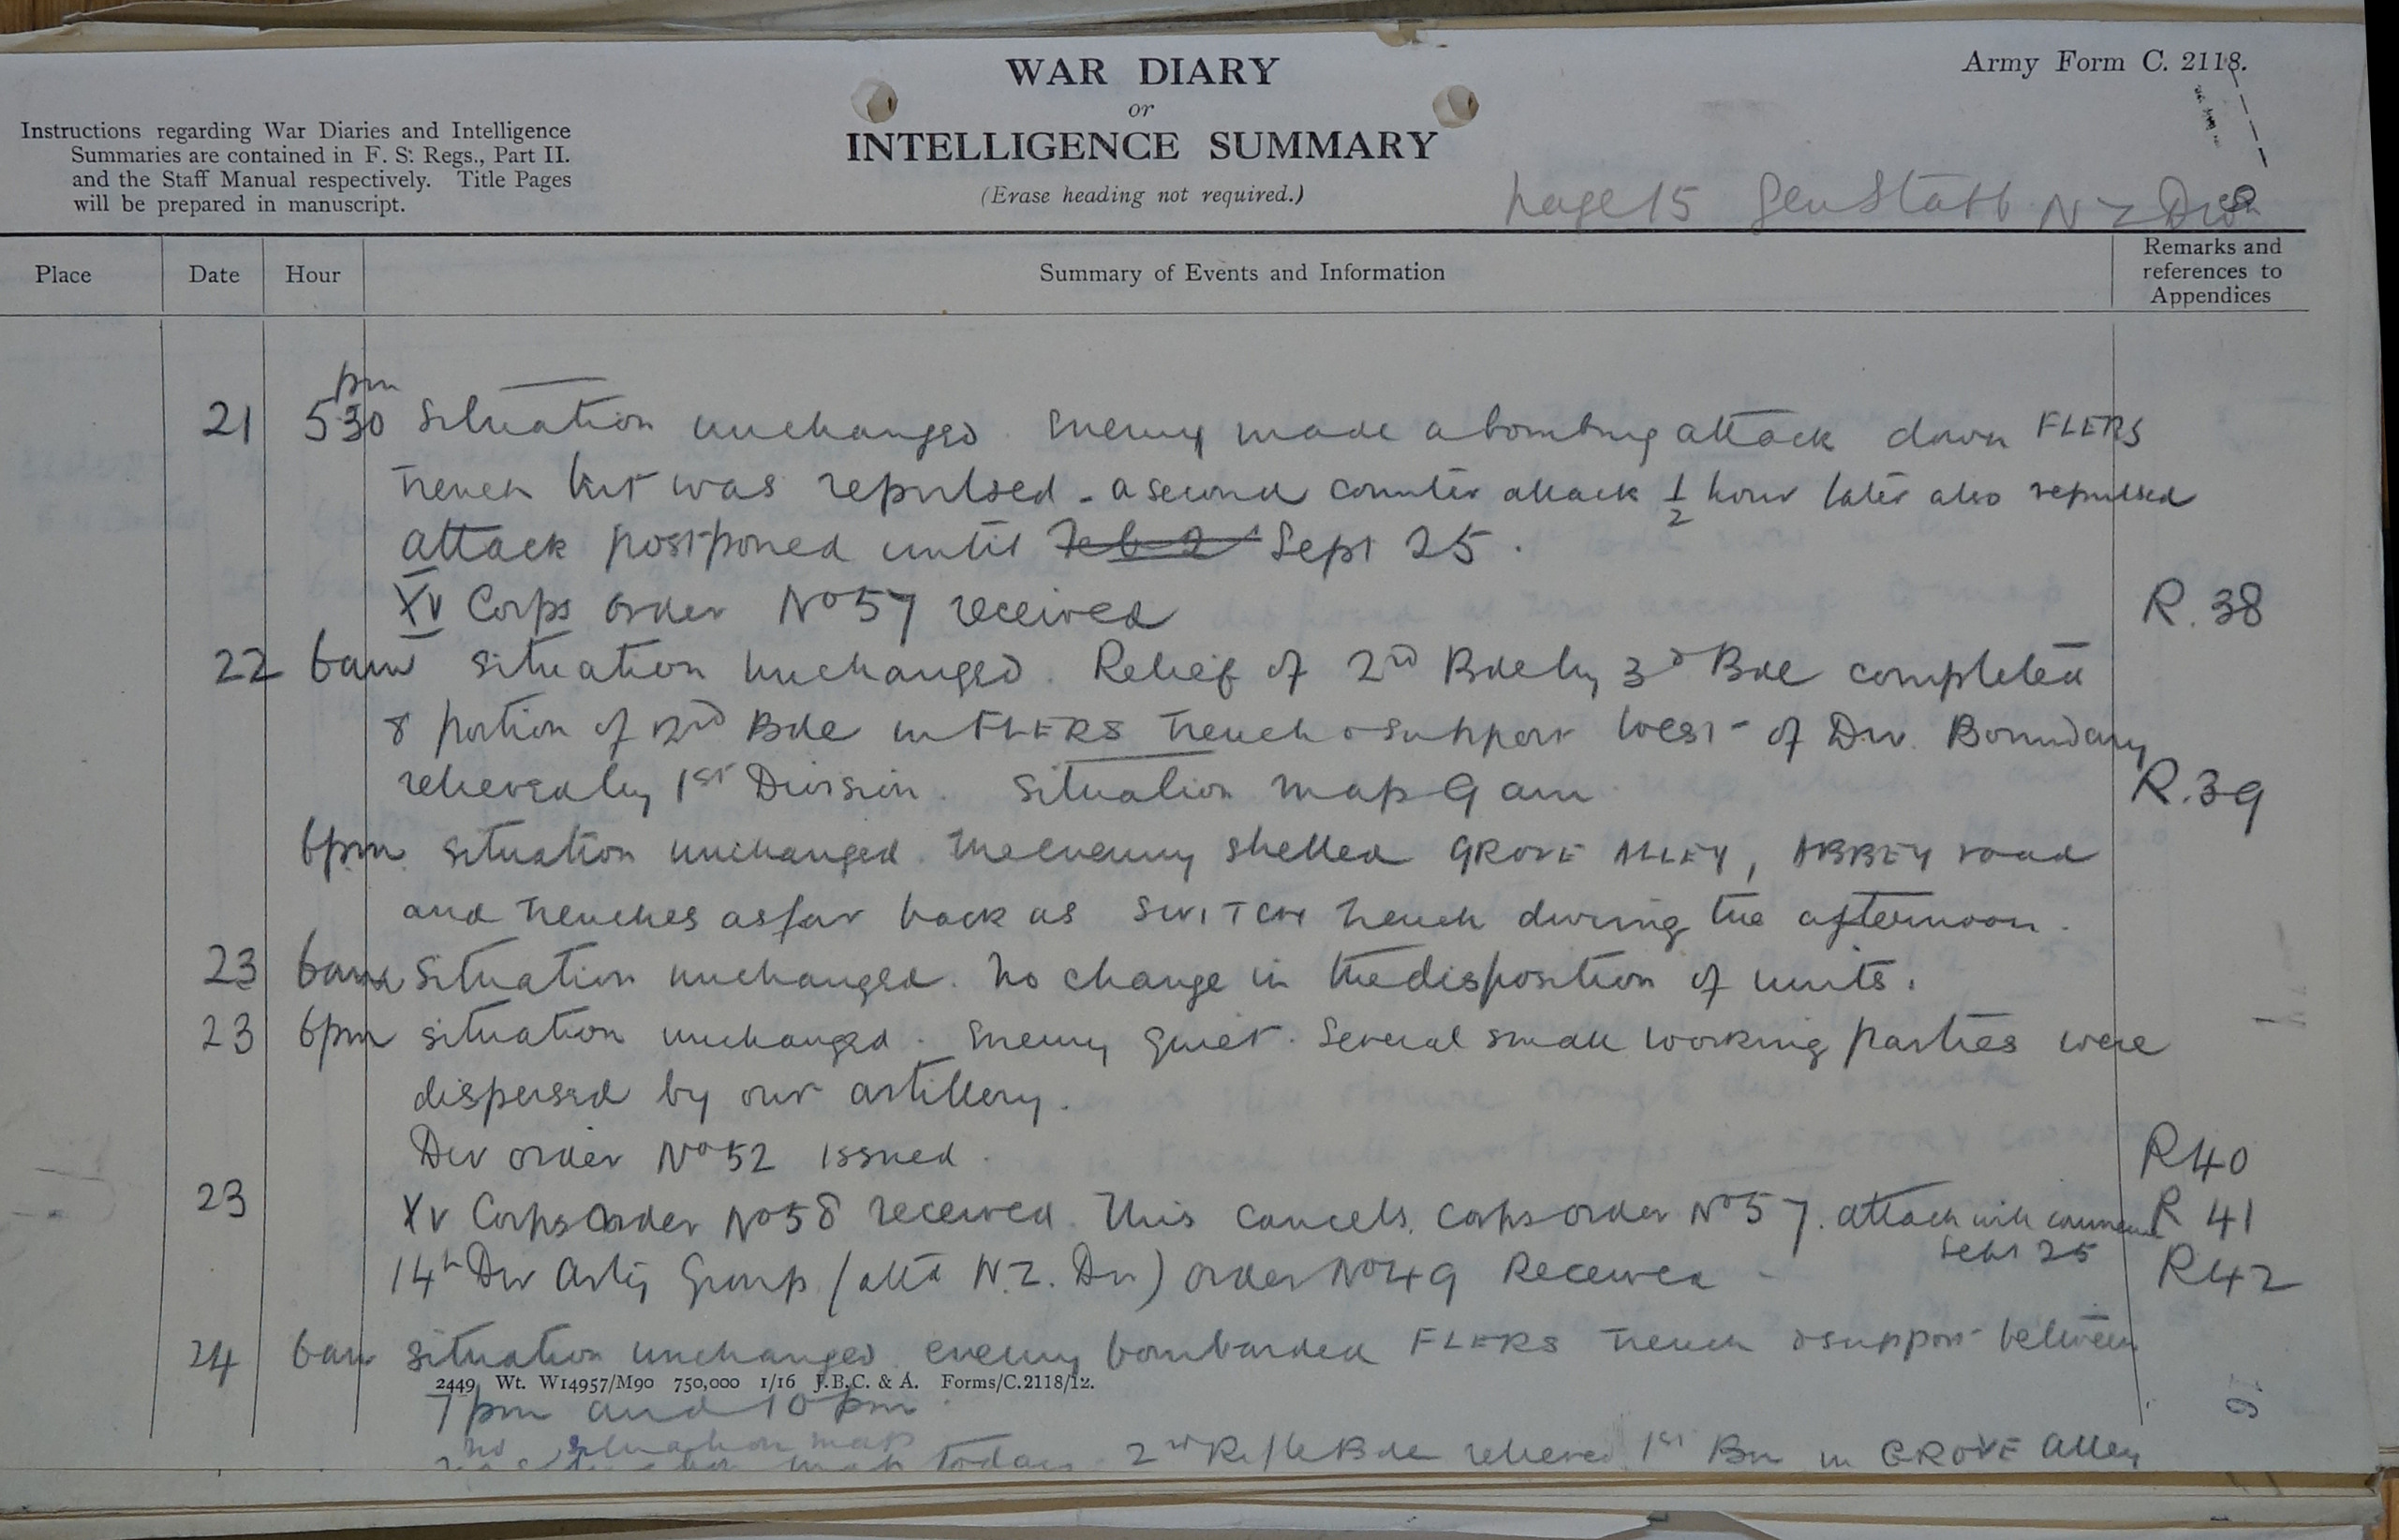 Army Form C. 2118.
WAR DIARY
or
INTELLIGENCE SUMMARY
(Erase heading not required.)
Instructions regarding War Diaries and Intelligence
Summaries are contained in F. S. Regs., Part II.
and the Staff Manual respectively. Title Pages
will be prepared in manuscript.
page 15 Gen Staff N Z Divn
Place Date Hour Summary of Events and Information Remarks and
references to
Appendices
pm
21 530 Situation unchanged. Enemy made a bombing attack down FLERS
trench but was repulsed - a second counter attack ½ hour later also repulsed
attack postponed until Feb 2 Sept 25.
XV Corps order No 57 received R. 38
22 6am situation unchanged. Relief of 2nd Bde by 3rd Bde completed
& portion of 2nd Bde in FLERS trench & support west of Div. Boundary
relieved by 1st Division. Situation map 9 am R.39
6pm. situation unchanged. The enemy shelled GROVE ALLEY, ABBEY road
and trenches as far back as SWITCH trench during the afternoon.
23 6am situation unchanged. No change in the disposition of units.
23 6pm situation unchanged. Enemy quiet. Several small working parties were
dispersed by our artillery.
Div order No 52 issued. R40
23 XV Corps Order No 58 received. This cancels Corps order No 57. attack will commence R 41
Sept 25
14th Div Arty Group (attd N.Z. Div) order No 49 Received R42
24 6am situation unchanged enemy bombarded FLERS trench & support between
2449 Wt. W14957/M90 750,000 1/16 J.B.C. & A. Forms/C.2118/12.
7pm and 10pm.
no situation map
today. 2nd Rifle Bde relieved 1st Bn in GROVE Alley